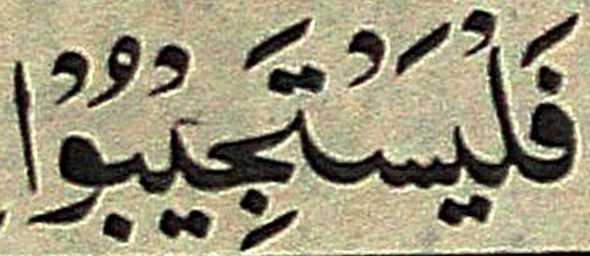 فَلْيَسْتَجِيبُوا